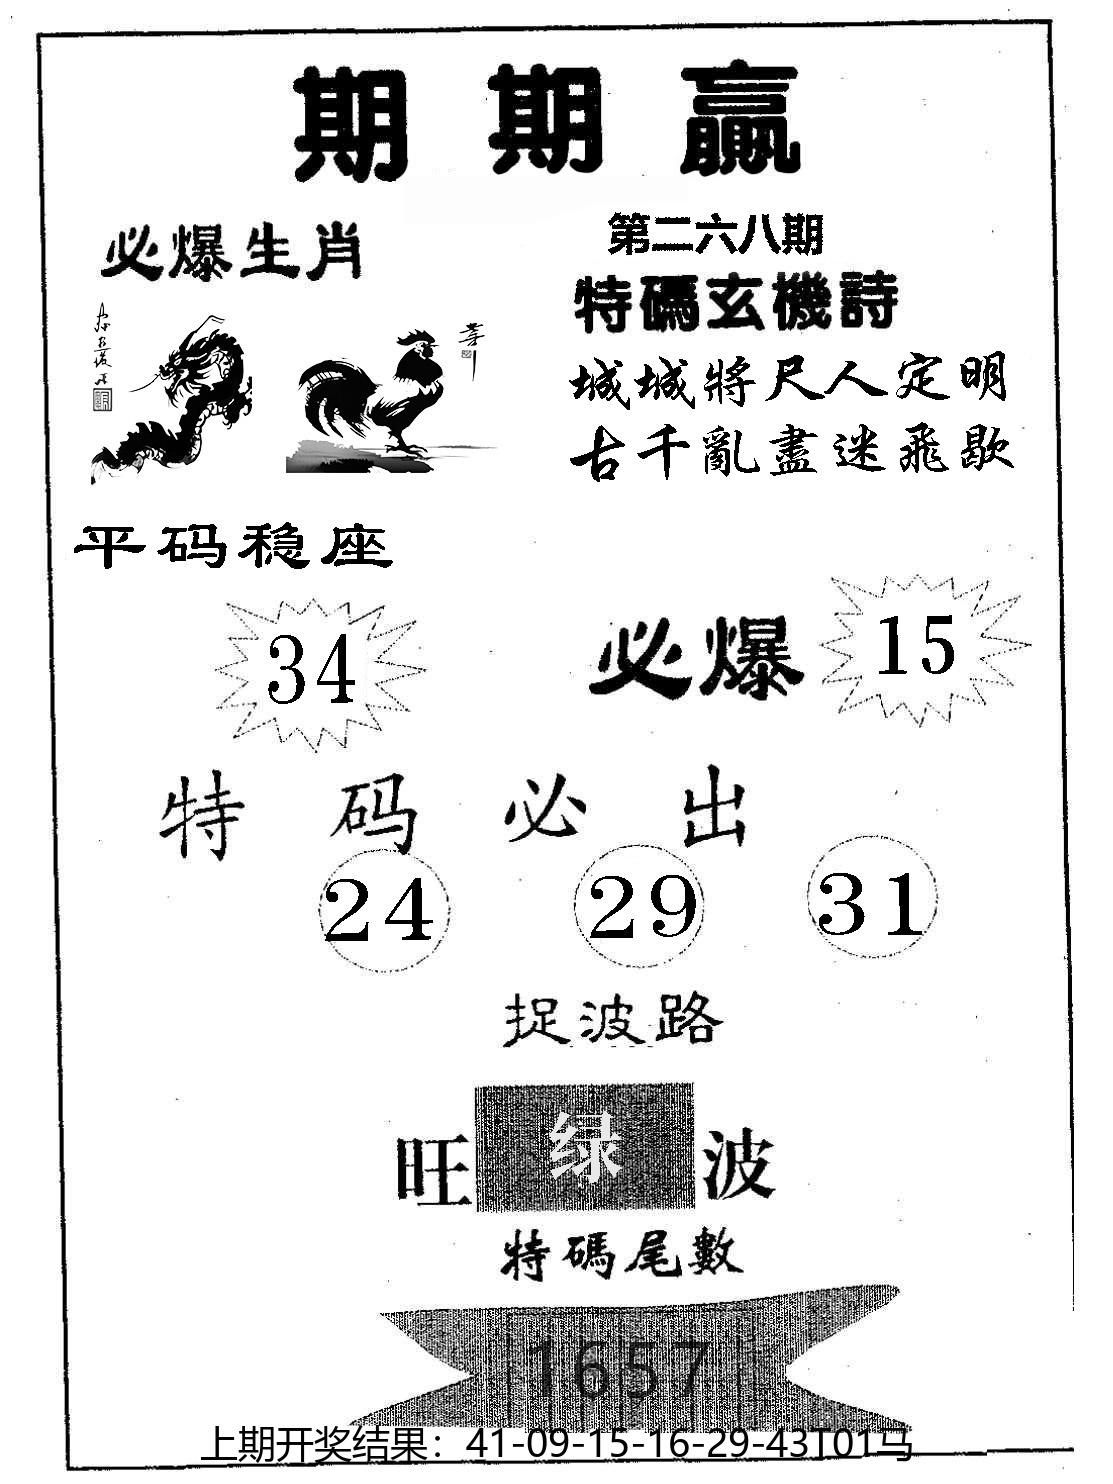 期期贏
必爆生肖
第二六八期
特碼玄機詩
城城將尺人定明
古千亂盡迷飛歇
平码稳座
34
必爆
15
特码必出
24 29 31
捉波路
旺绿波
特碼尾數
1657
上期开奖结果：41-09-15-16-29-43T01马